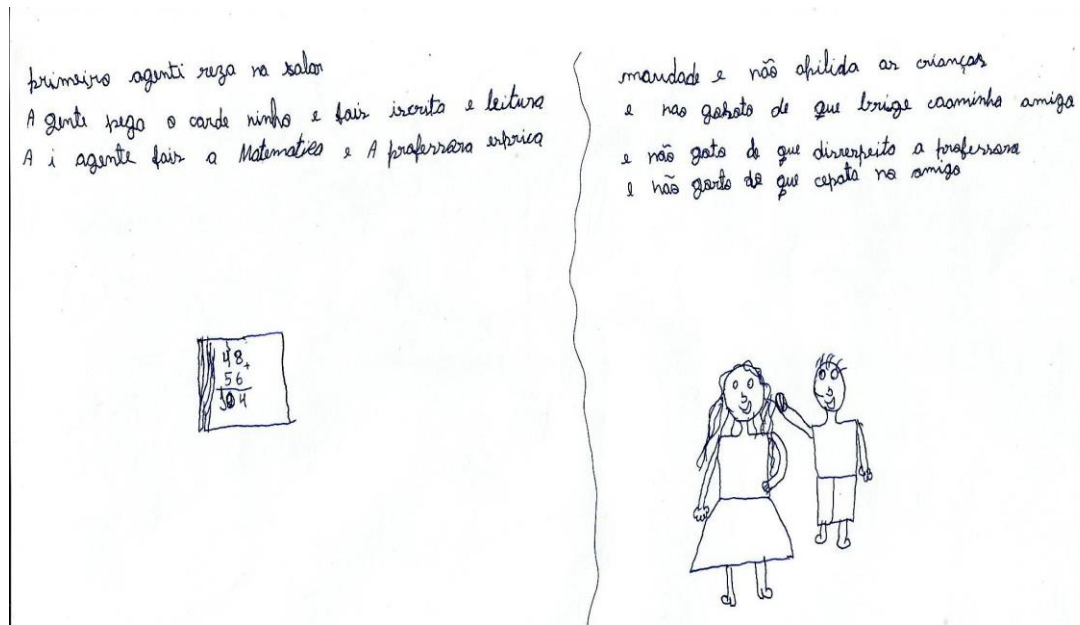 primeiro agenti reza na salar
A gente pega o carde ninho e fais iscrita e leitura
A i agente fais a Matematica e A professora esprica
48+
56
104
maudade e não apilida as crianças
e nao gosto de que brige caominha amiga
e não goto de que disrespeito a professora
e não gosto de que cepata na amigo